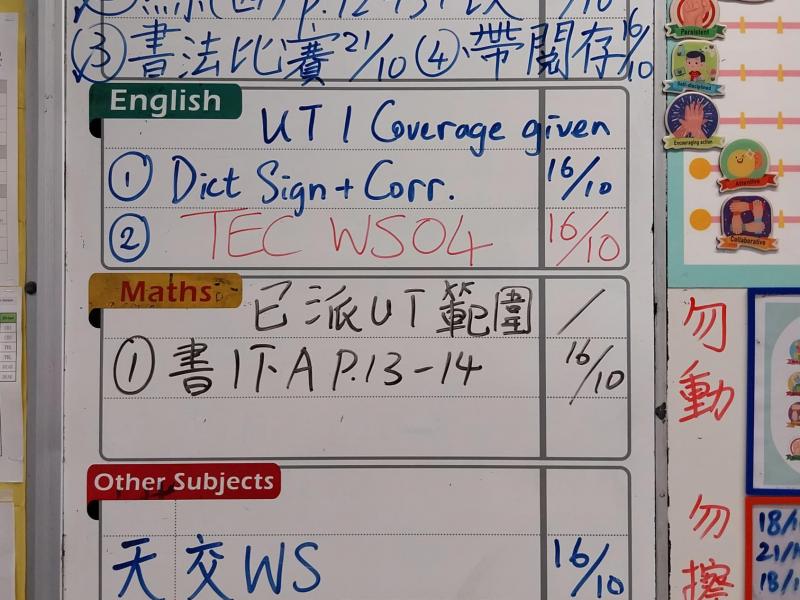 ③書法比賽 21/10 ④帶閱存 16/10
English
UT 1 Coverage given
① Dict Sign + Corr. 16/10
② TEC WS04 16/10
Maths
已派UT範圍 /
① 書1下A P.13-14 16/10
Other Subjects
天交WS 16/10
Persistent
Self-disciplined
Encouraging action
Attentive
Collaborative
勿動
勿擦